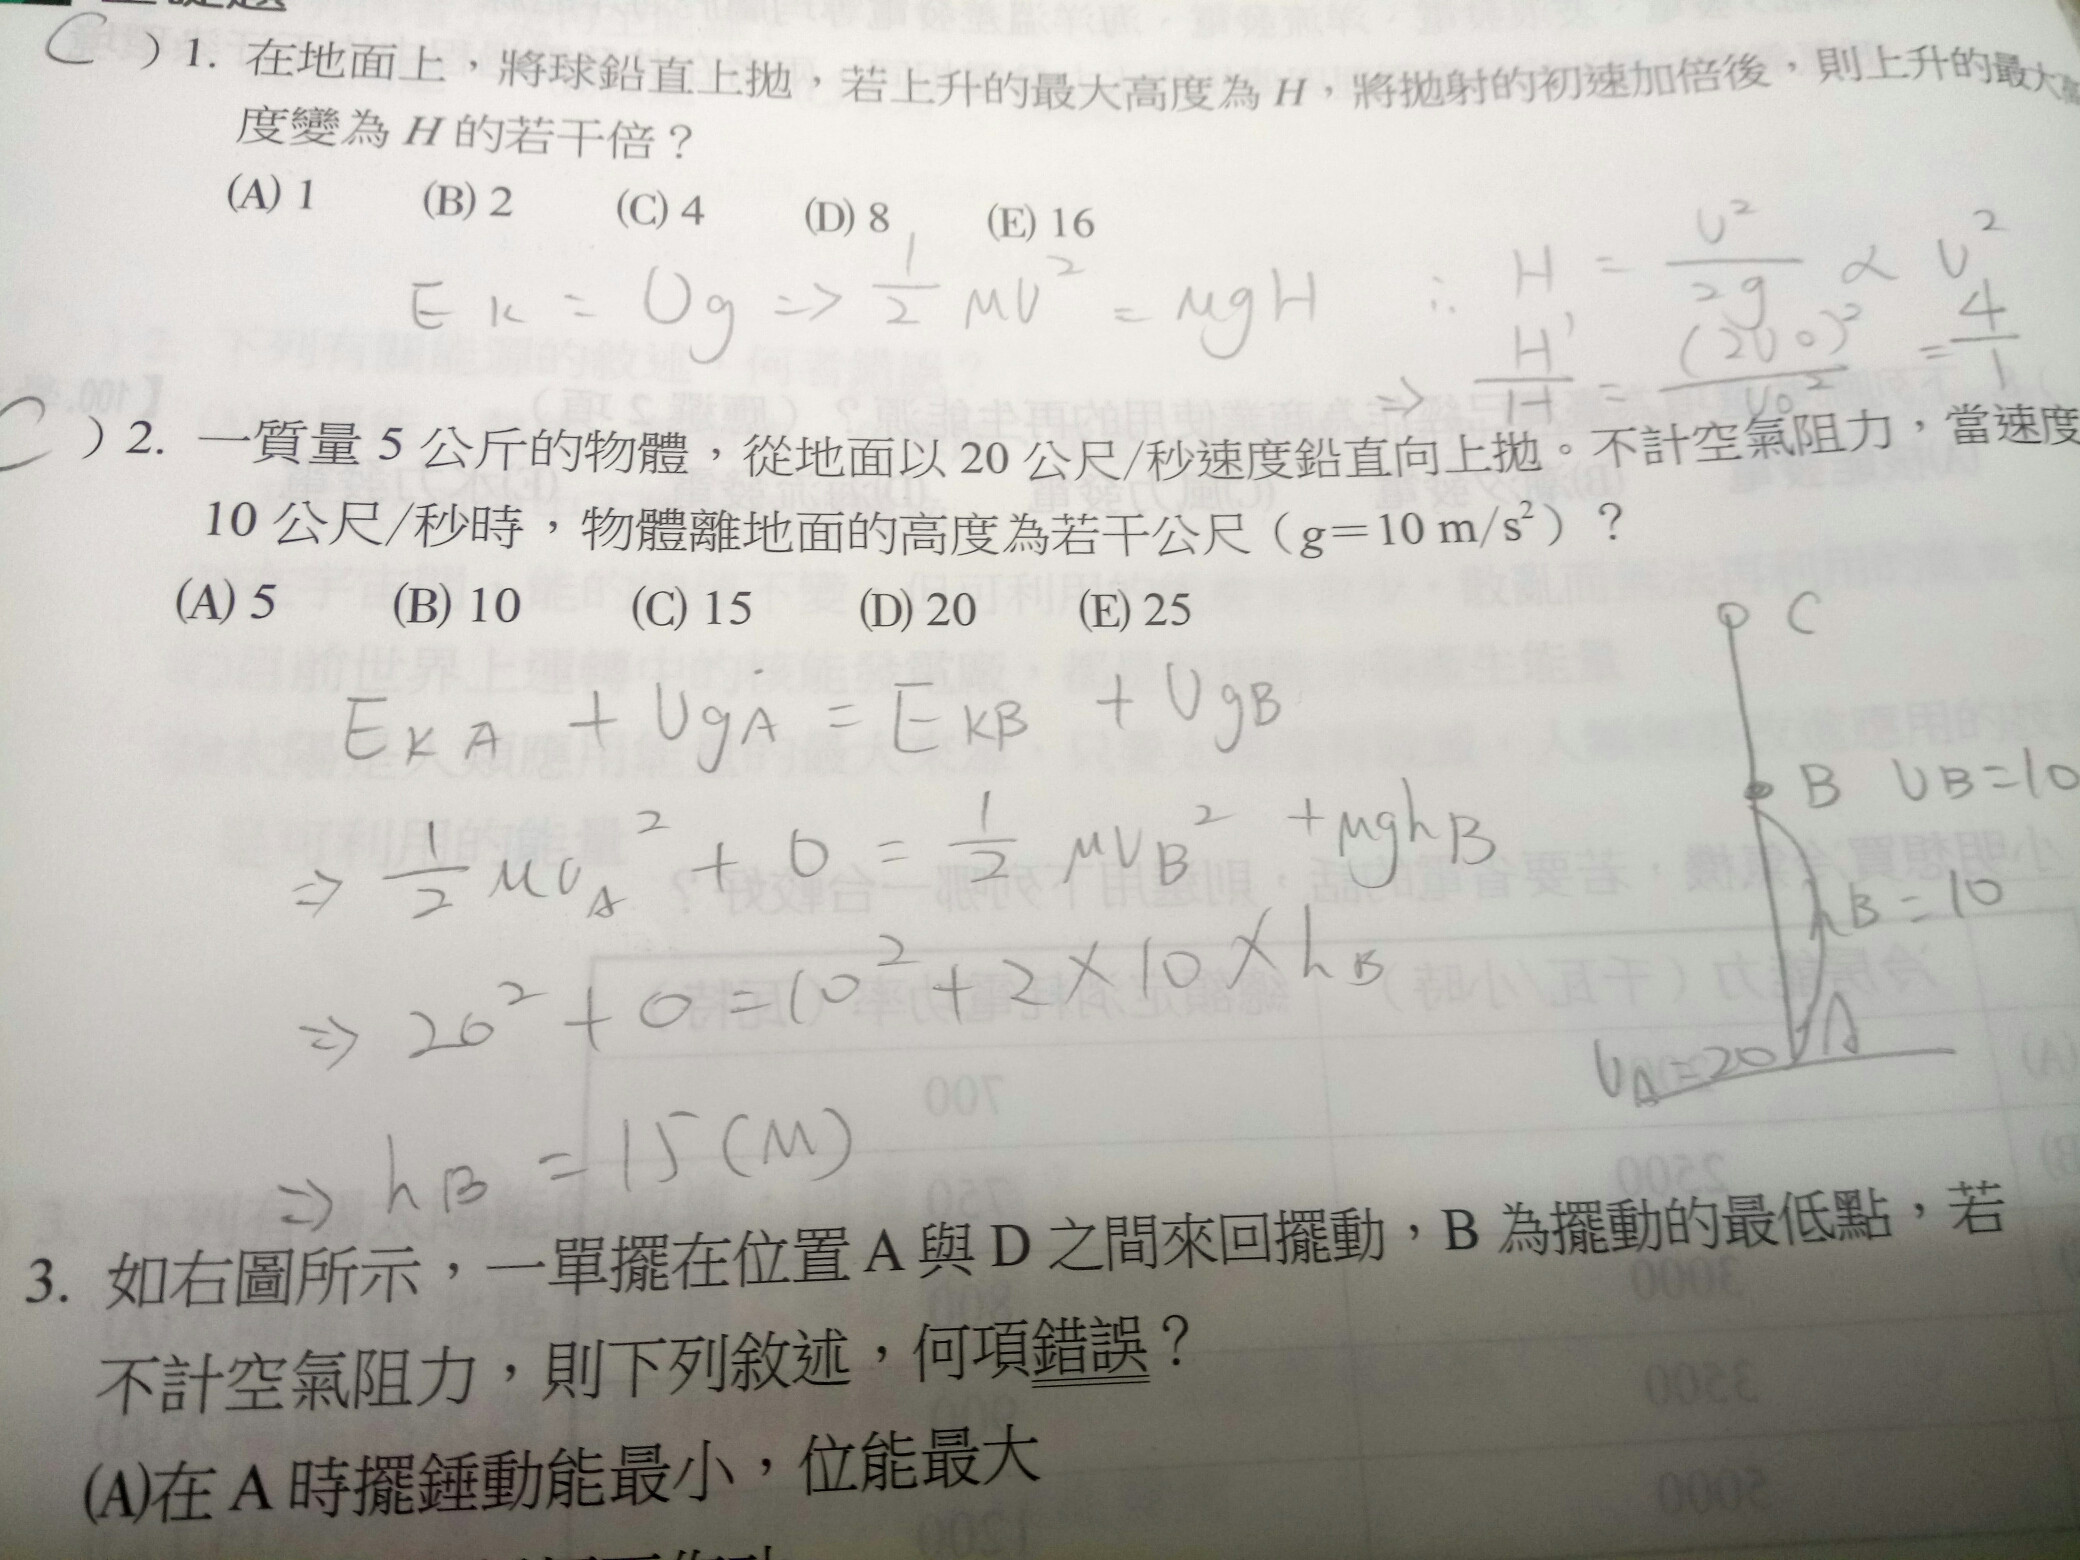 C ) 1. 在地面上，將球鉛直上拋，若上升的最大高度為 H，將拋射的初速加倍後，則上升的最大
度變為 H 的若干倍？
(A) 1 (B) 2 (C) 4 (D) 8 (E) 16
EK = Ug => 1/2 MV² = MgH ∴ H = V²/2g ∝ V²
=> H'/H = (2V0)²/V0² = 4/1
C ) 2. 一質量 5 公斤的物體，從地面以 20 公尺/秒速度鉛直向上拋。不計空氣阻力，當速度
10 公尺/秒時，物體離地面的高度為若干公尺（g＝10 m/s²）？
(A) 5 (B) 10 (C) 15 (D) 20 (E) 25
C
EKA + UgA = EKB + UgB
B VB=10
=> 1/2 MVA² + 0 = 1/2 MVB² + MghB
hB=10
=> 20² + 0 = 10² + 2×10×hB
VA=20 A
=> hB = 15 (M)
3. 如右圖所示，一單擺在位置 A 與 D 之間來回擺動，B 為擺動的最低點，若
不計空氣阻力，則下列敘述，何項錯誤？
(A)在 A 時擺錘動能最小，位能最大